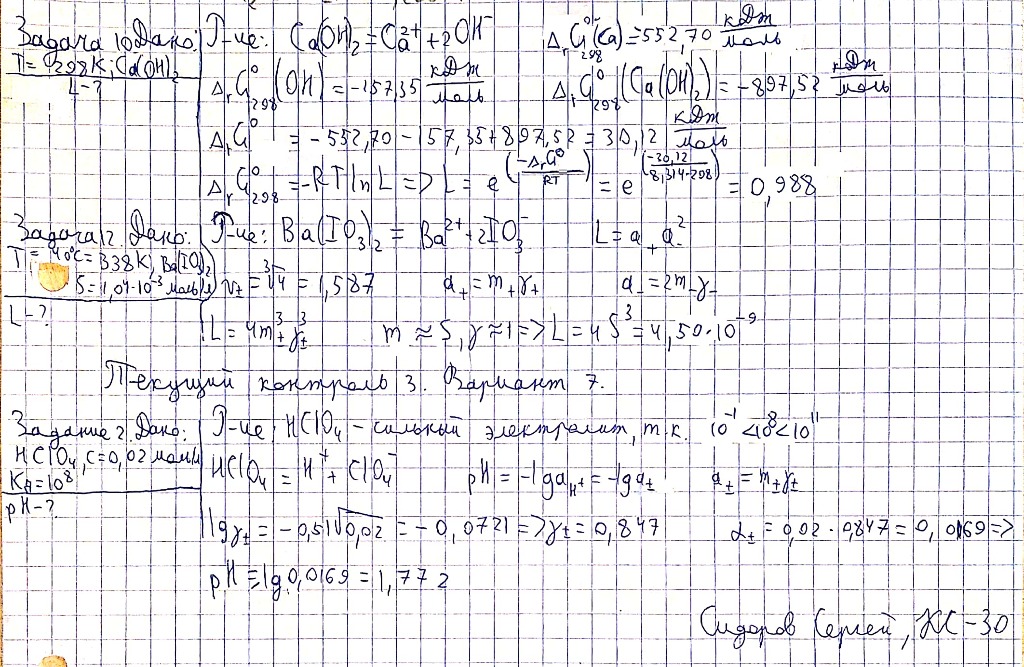 Задача 10 Дано:
T = 298K, Ca(OH)₂
L - ?
Р-ие: Ca(OH)₂ = Ca²⁺ + 2OH⁻
ΔᵣG⁰₂₉₈(Ca) = 552,70 кДж/моль
ΔᵣG⁰₂₉₈(OH) = -157,35 кДж/моль
ΔᵣG⁰₂₉₈(Ca(OH)₂) = -897,52 кДж/моль
ΔᵣG⁰ = -552,70 - 157,35 + 897,52 = 30,12 кДж/моль
ΔᵣG⁰₂₉₈ = -RT ln L => L = e^(-ΔᵣG⁰/RT) = e^(-30,12/8,314·298) = 0,988
Задача 12. Дано:
T = 40°C = 338K, Ba(IO₃)₂
S = 1,04·10⁻³ моль/л
L - ?
Р-ие: Ba(IO₃)₂ = Ba²⁺ + 2IO₃⁻ L = a₊a₋²
ν± = ³√4 = 1,587 a₊ = m₊γ₊ a₋ = 2m₋γ₋
L = 4m±³γ±³ m ≈ S, γ ≈ 1 => L = 4S³ = 4,50·10⁻⁹
Текущий контроль 3. Вариант 7.
Задание 2. Дано:
HClO₄, C = 0,02 моль/л
K = 10⁸
pH - ?
Р-ие: HClO₄ - сильный электролит, т.к. 10⁻¹ < 10⁸ < 10¹¹
HClO₄ = H⁺ + ClO₄⁻ pH = -lg a_H⁺ = -lg a± a± = m±γ±
lg γ± = -0,51√0,02 = -0,0721 => γ± = 0,847 a± = 0,02 · 0,847 = 0,0169 =>
pH = -lg 0,0169 = 1,772
Сидоров Сергей, КС-30